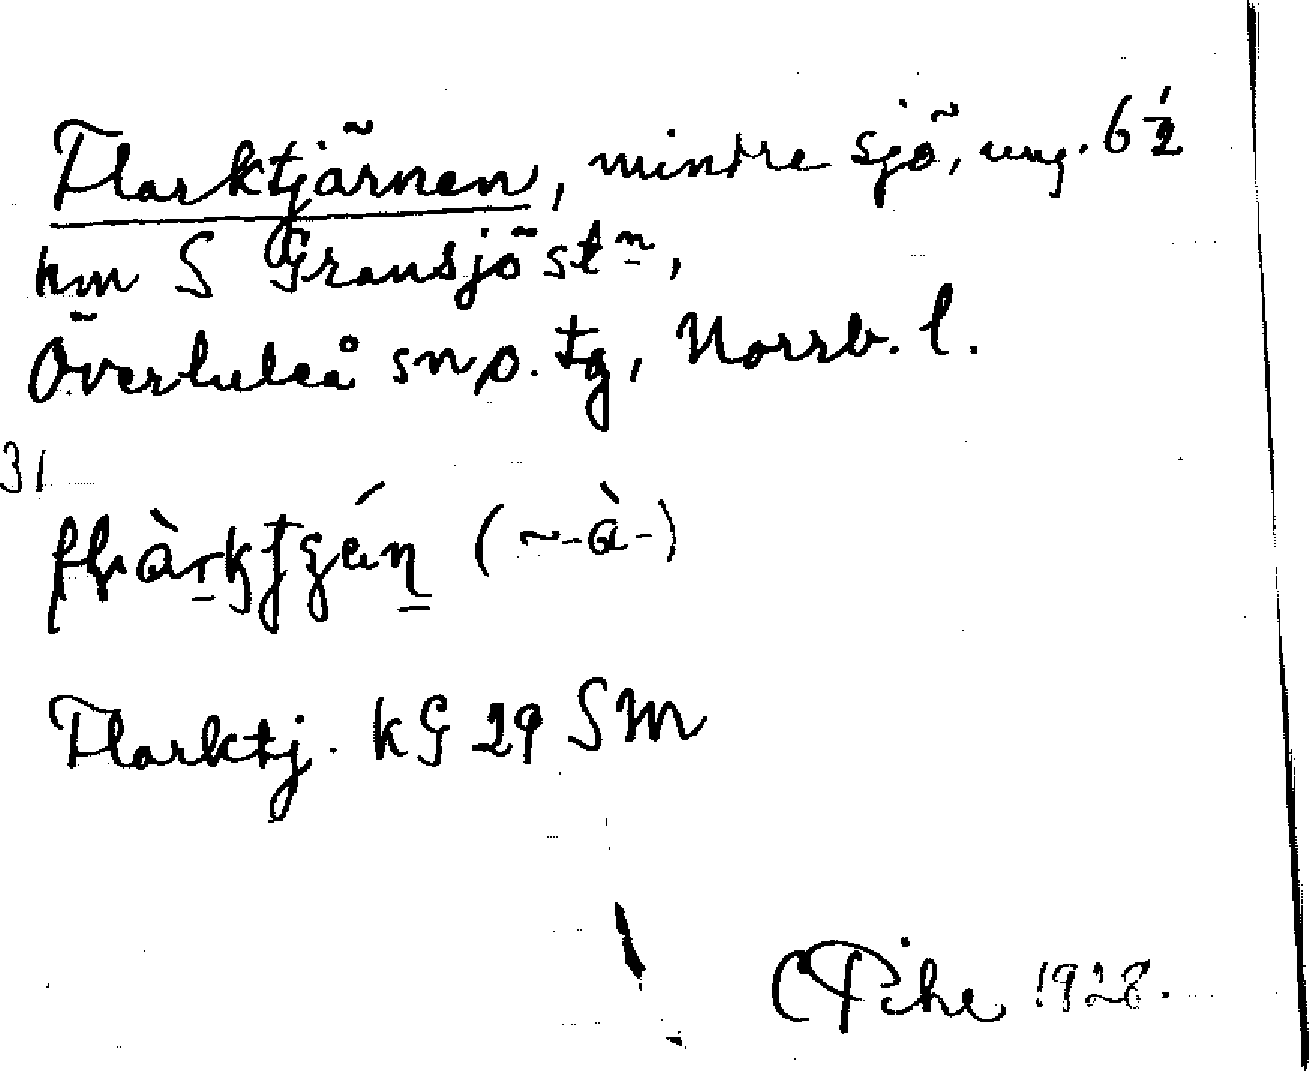 Flarktjärnen, mindre sjö, ung. 6 ½
km S Gransjö stn,
Överluleå sn, o. tg, Norrb. l.
31
(~-à-)
Flarktj. kG 29 SM
C Pihe 1928.